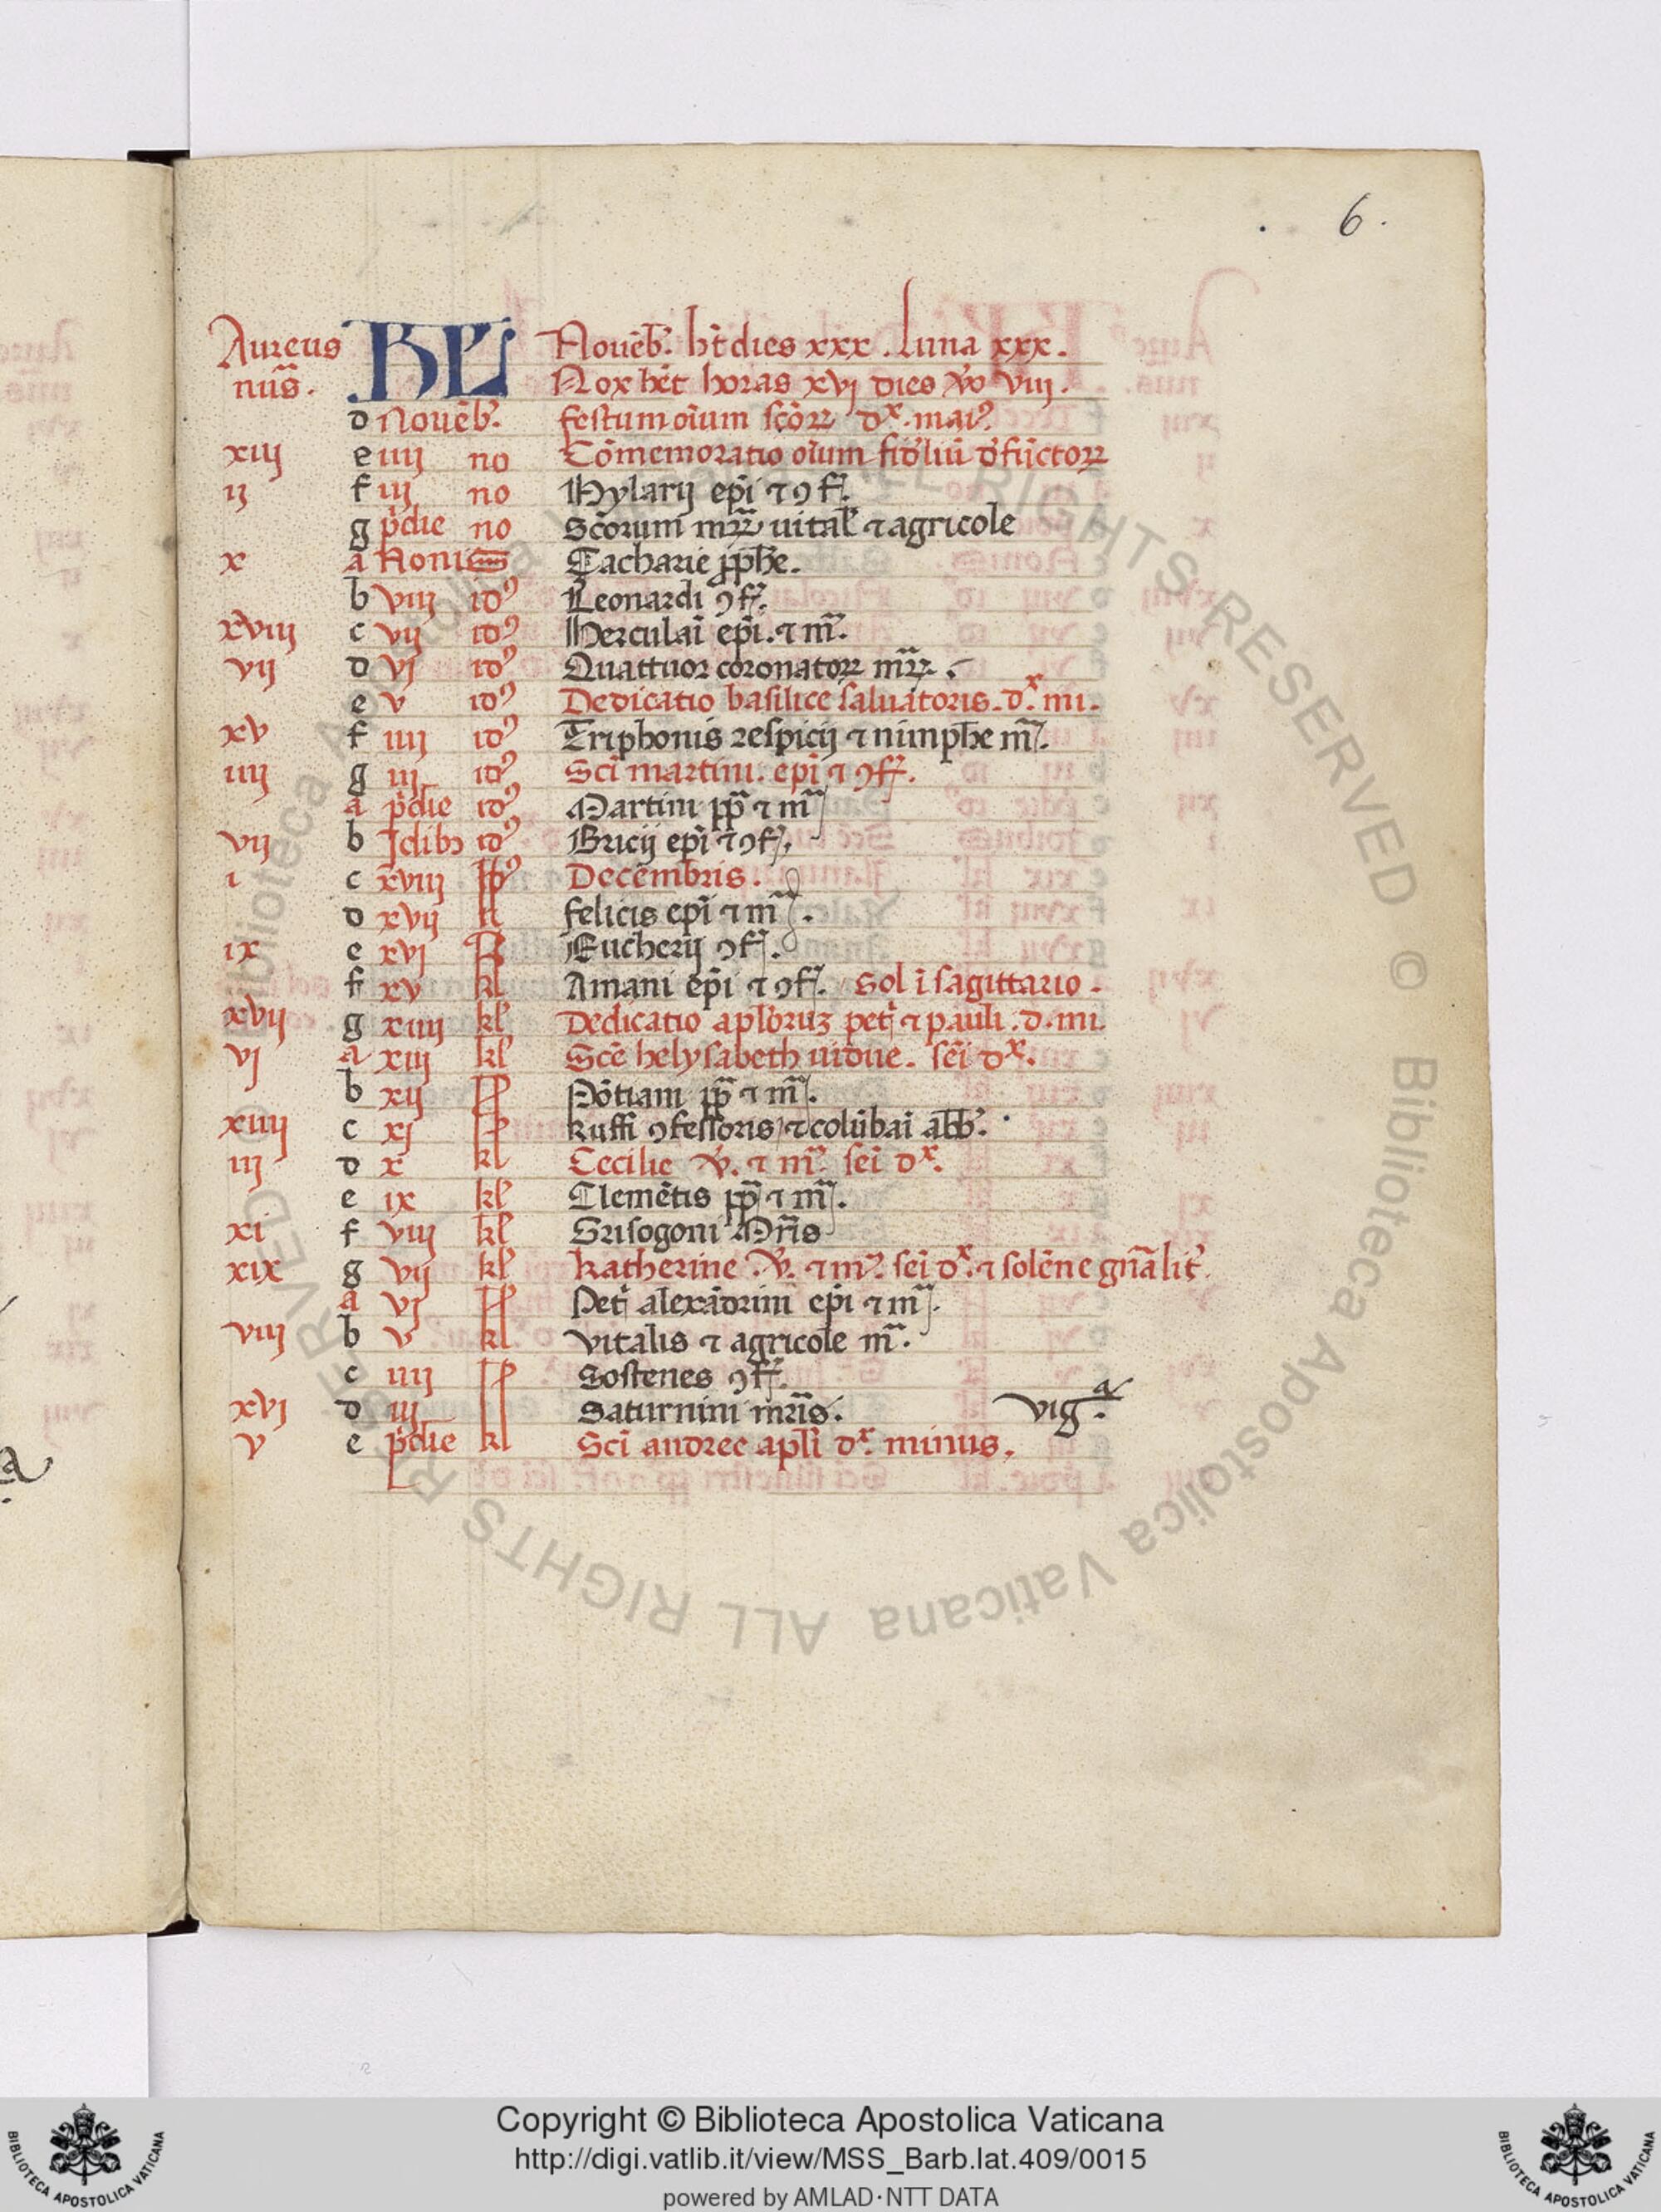 6.
Aureus KL Nouēb̄. h̄t dies xxx. luna xxx.
nūs. Nox h̄et horas xvj dies v̄o viij.
d Nouēb̄. festum oīum sc̄oꝝ dˣ. maiꝰ.
xiij e iiij no Cōmemoratio oīum fid̄liū d̄fūctoꝝ
ij f iij no Hylarij ep̄i ⁊ ꝯf̄.
g p̄die no Sc̄orum mr̄ꝝ uital̄ ⁊ agricole
x a Noni Zacharie ꝓph̄e.
b viij idꝰ Leonardi ꝯf̄.
xviij c vij idꝰ Herculāi ep̄i. ⁊ m̄.
vij d vj idꝰ Quattuor coronatoꝝ mr̄ꝝ.
e v idꝰ Dedicatio basilice saluatoris. dˣ. mi.
xv f iiij idꝰ Triphonis respicij ⁊ nimphe m̄.
iiij g iij idꝰ Sc̄i martini. ep̄i ⁊ ꝯf̄.
a p̄die idꝰ Martini pp̄ ⁊ m̄
vij b Idibꝫ idꝰ Bricij ep̄i ⁊ ꝯf̄.
i c xviij kl Decembris.
d xvij kl felicis ep̄i ⁊ m̄.
ix e xvj kl Eucherij ꝯf̄.
f xv kl Amani ep̄i ⁊ ꝯf̄. Sol ī sagittario.
xvij g xiiij kl Dedicatio apl̄oruꝫ pet̄ ⁊ pauli. d. mi.
vj a xiij kl Sc̄e helysabeth uidue. sēi dˣ.
b xij kl Pōtiani pp̄ ⁊ m̄.
xiiij c xj kl Ruffi ꝯfessoris ⁊ colūbāi ab̄b.
iij d x kl Cecilie v̄. ⁊ m̄. sēi dˣ.
e ix kl Clemētis pp̄ ⁊ m̄.
xi f viij kl Grisogoni Mr̄is
xix g vij kl Katherine v̄. ⁊ m̄. sēi dˣ. ⁊ solēne gn̄alit̄.
a vj kl Pet̄ alexādrini ep̄i ⁊ m̄.
viij b v kl vitalis ⁊ agricole m̄.
c iiij kl Sostenes ꝯf̄.
xvj d iij kl Saturnini mr̄is. vigᵃ.
v e p̄die kl Sc̄i andree apl̄i dˣ. minus.
Biblioteca Apostolica Vaticana ALL RIGHTS RESERVED © Biblioteca Apostolica Vaticana ALL RIGHTS RESERVED ©
BIBLIOTECA APOSTOLICA VATICANA
Copyright © Biblioteca Apostolica Vaticana
http://digi.vatlib.it/view/MSS_Barb.lat.409/0015
powered by AMLAD·NTT DATA
BIBLIOTECA APOSTOLICA VATICANA